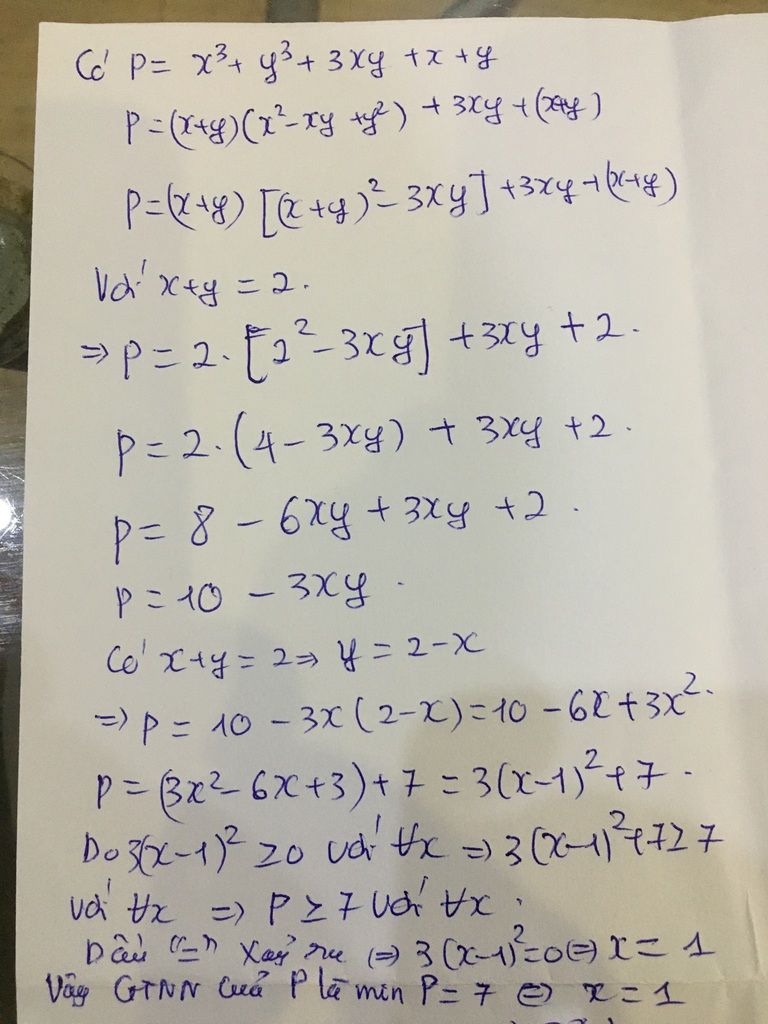 Có P = x³ + y³ + 3xy + x + y
P = (x+y)(x² - xy + y²) + 3xy + (x+y)
P = (x+y) [(x+y)² - 3xy] + 3xy + (x+y)
Với x+y = 2.
⇒ P = 2. [2² - 3xy] + 3xy + 2.
P = 2. (4 - 3xy) + 3xy + 2.
P = 8 - 6xy + 3xy + 2.
P = 10 - 3xy.
Có x+y = 2 ⇒ y = 2-x
⇒ P = 10 - 3x(2-x) = 10 - 6x + 3x².
P = (3x² - 6x + 3) + 7 = 3(x-1)² + 7.
Do 3(x-1)² ≥ 0 với ∀x ⇒ 3(x-1)² + 7 ≥ 7
với ∀x ⇒ P ≥ 7 với ∀x.
Dấu "=" xảy ra ⇔ 3(x-1)² = 0 ⇔ x = 1
Vậy GTNN của P là min P = 7 ⇔ x = 1